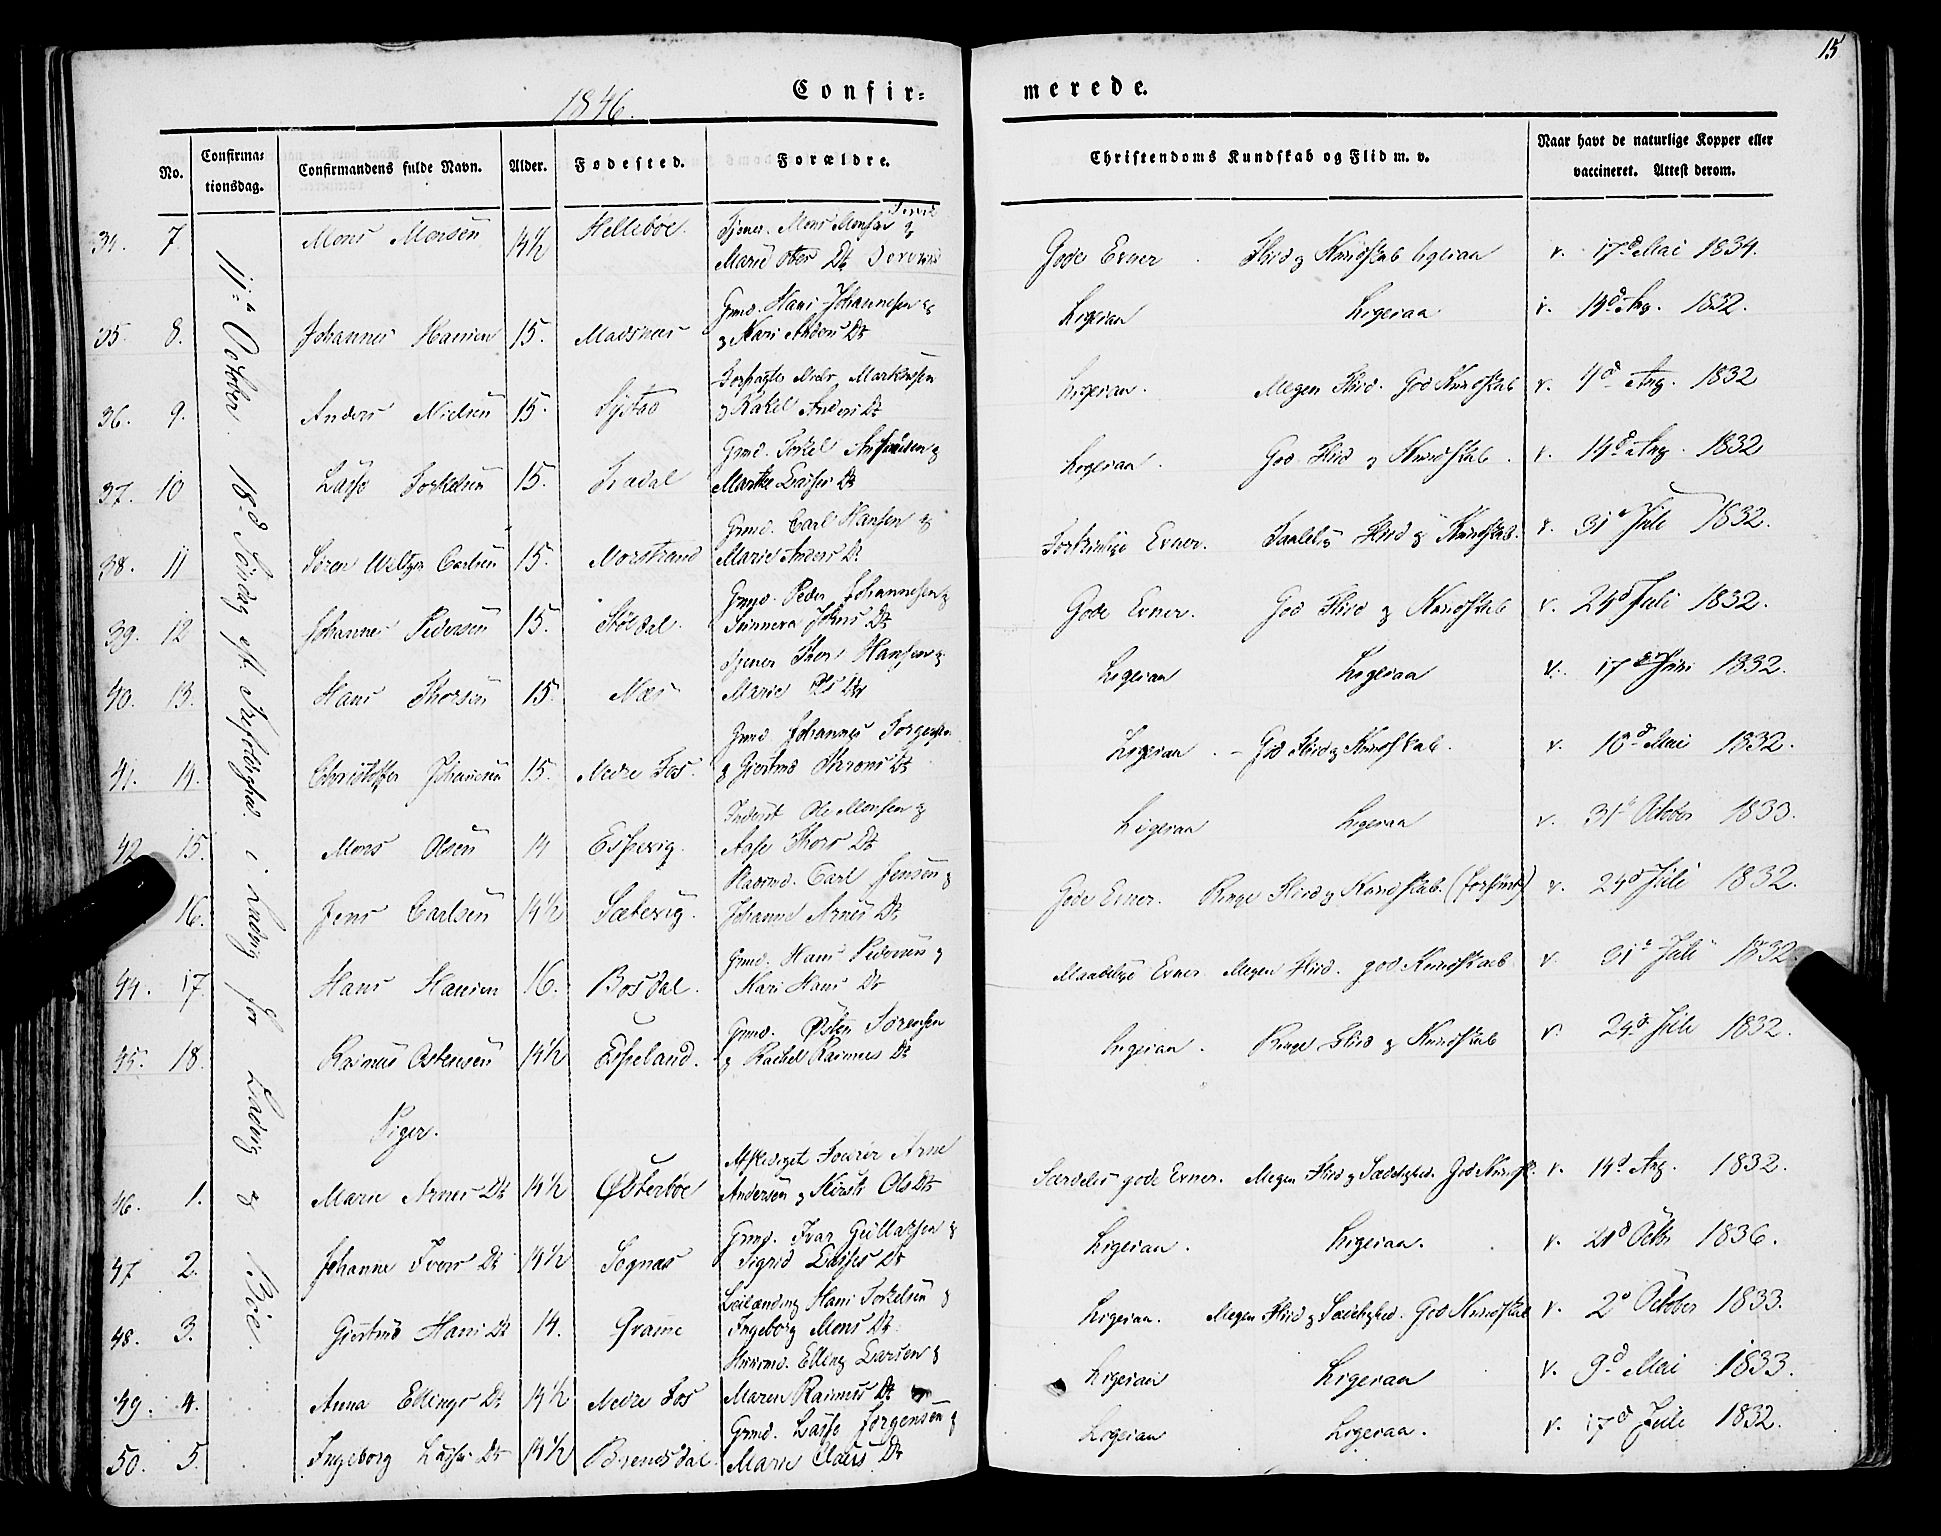 15
1846.
Confir= merede.
No. Confirma= tionsdag. Confirmandens fulde Navn. Alder. Fødested. Forældre. Christendoms Kundskab og Flid m. v. Naar havt de naturlige Kopper eller vaccineret. Attest derom.
11te October 18d Søndag eft. Trefoldighed i Ladvig for Ladvig og Böe.
34. 7. Mons Monsen 14½ Hellebøe. Tjener Mons Monsen &
Marie Ols Dt
Gode Evner Flid & Kundskab ligesaa v. 17d Mai 1834.
35. 8. Johannes Hansen 15. Grmd. Hans Johannesen &
Kari Anders Dt
Ligesaa Ligesaa v. 14d Aug. 1832.
36. 9. Anders Nielsen 15. Systad Niels Markussen
& Rakel Anders Dt
Ligesaa. Megen Flid. God Kundskab v. 4d Aug. 1832
37. 10 Lasse Torkelsen 15. Grmd. Torkel &
Marthe Lasses Dt
Ligesaa. God Flid & Kundskab. v. 14d Aug. 1832
38. 11 Søren Carlsen 15. Grmd. Carl Hansen &
Marie Anders Dt
Evner. Flid & Kundskab. v. 31 Juli 1832.
39. 12 Johannes Pedersen 15. Størdal. Grmd. Peder Johannesen &
Sunneva Johns Dt
Gode Evner. God Flid & Kundskab v. 24d Juli 1832.
40. 13. Hans Thorsen 15. Næs Tjener Thor Hansen &
Marie Ols Dt
Ligesaa Ligesaa v. 17 Juni 1832.
41. 14. Christoffer Johannesen 15. Nedre Fos. Grmd. Johannes
& Giertrud Dt
Ligesaa. – God Flid & Kundskab. v. 10d Mai 1832.
42 15. Mons Olsen 14 Espevig. Inderst Ole Monsen &
Aase Thors Dt
Ligesaa Ligesaa v. 31 October 1833.
16. Jens Carlsen 14½ Sætevig. Carl Jensen &
Johanne Arnes Dt
Gode Evner. Ringe Flid & Kundskab. v. 24d Juli 1832.
44. 17. Hans Hansen 16. Bosdal. Grmd. Hans Pedersen &
Kari Hans Dt
Maadelige Evner Megen Flid. god Kundskab v. 31 Juli 1832.
45. 18. Rasmus Ostensen 14½ Espeland. Grmd. Østen Sørensen
& Rachel Rasmus Dt
Ligesaa. Ringe Flid & Kundskab v. 24d Juli 1832.
Piger.
46. 1. Marie Arnes Dt 14½ Østerbøe Afskediget Arne
Andersen & Kirsti Ols Dt
Særdeles gode Evner. Megen Flid & Sædelighed. God Kundsk. v. 14d Aug. 1832.
47 2. Johanne Ivers Dt 14½ Sognæs Grmd. Ivar Gullaksen &
Sigrid Lasses Dt
Ligesaa. Ligesaa. v. 21d Octbr 1836.
48. 3. Giertrud Hans Dt 14. Qvamme Leilænding Hans Torkelsen &
Ingeborg Mons Dt
Ligesaa. Megen Flid & Sædelighed. God Kundskab v. 2d October 1833.
49. 4. Anna Ellings Dt 14½ Nedre Fos Huusmd. Elling Larsen &
Maren Rasmus Dt
Ligesaa Ligesaa v. 9d Mai 1833.
50. 5. Ingeborg Lasses Dt 14½ Brendsdal. Grmd. Lasse Jørgensen &
Marie Claus Dt
Ligesaa Ligesaa. v. 17d Juli 1832.